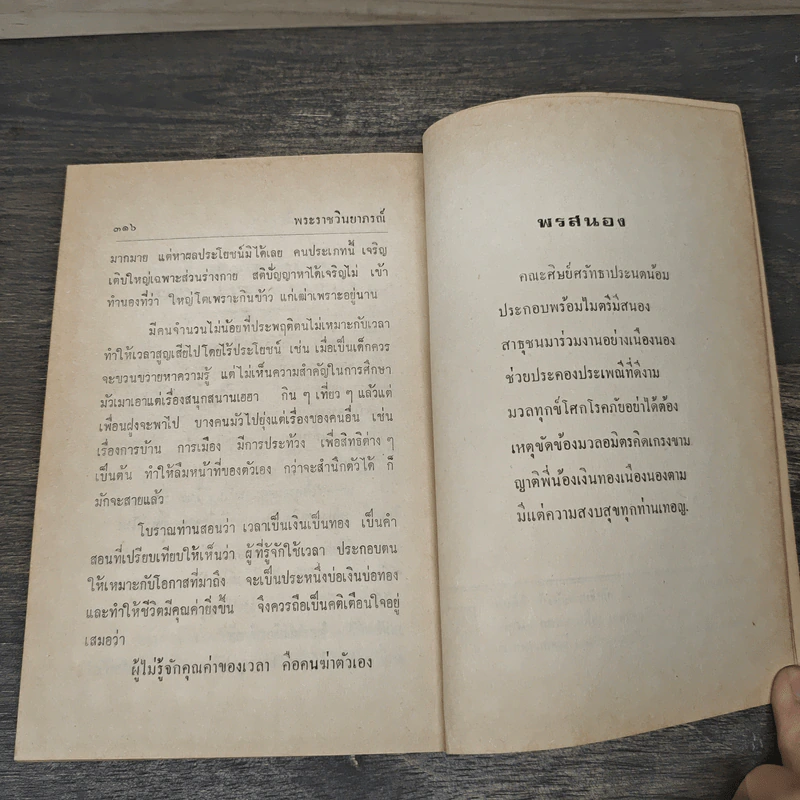 ๓๑๖ พระราชวินยาภรณ์
มากมาย แต่หาผลประโยชน์มิได้เลย คนประเภทนี้ เจริญ
เติบใหญ่เฉพาะส่วนร่างกาย สติปัญญาหาได้เจริญไม่ เข้า
ทำนองที่ว่า ใหญ่โตเพราะกินข้าว แก่เฒ่าเพราะอยู่นาน
มีคนจำนวนไม่น้อยที่ประพฤติตนไม่เหมาะกับเวลา
ทำให้เวลาสูญเสียไปโดยไร้ประโยชน์ เช่น เมื่อเป็นเด็กควร
จะขวนขวายหาความรู้ แต่ไม่เห็นความสำคัญในการศึกษา
มัวเมาเอาแต่เรื่องสนุกสนานเฮฮา กิน ๆ เที่ยว ๆ แล้วแต่
เพื่อนฝูงจะพาไป บางคนมัวไปยุ่งแต่เรื่องของคนอื่น เช่น
เรื่องการบ้าน การเมือง มีการประท้วง เพื่อสิทธิต่าง ๆ
เป็นต้น ทำให้ลืมหน้าที่ของตัวเอง กว่าจะสำนึกตัวได้ ก็
มักจะสายแล้ว
โบราณท่านสอนว่า เวลาเป็นเงินเป็นทอง เป็นคำ
สอนที่เปรียบเทียบให้เห็นว่า ผู้ที่รู้จักใช้เวลา ประกอบตน
ให้เหมาะกับโอกาสที่มาถึง จะเป็นประหนึ่งบ่อเงินบ่อทอง
และทำให้ชีวิตมีคุณค่ายิ่งขึ้น จึงควรถือเป็นคติเตือนใจอยู่
เสมอว่า
ผู้ไม่รู้จักคุณค่าของเวลา คือคนฆ่าตัวเอง
พรสนอง
คณะศิษย์ศรัทธาประนตน้อม
ประกอบพร้อมไมตรีมีสนอง
สาธุชนมาร่วมงานอย่างเนืองนอง
ช่วยประคองประเพณีที่ดีงาม
มวลทุกข์โศกโรคภัยอย่าได้ต้อง
เหตุขัดข้องมวลอมิตรคิดเกรงขาม
ญาติพี่น้องเงินทองเนืองนองตาม
มีแต่ความสงบสุขทุกท่านเทอญ.